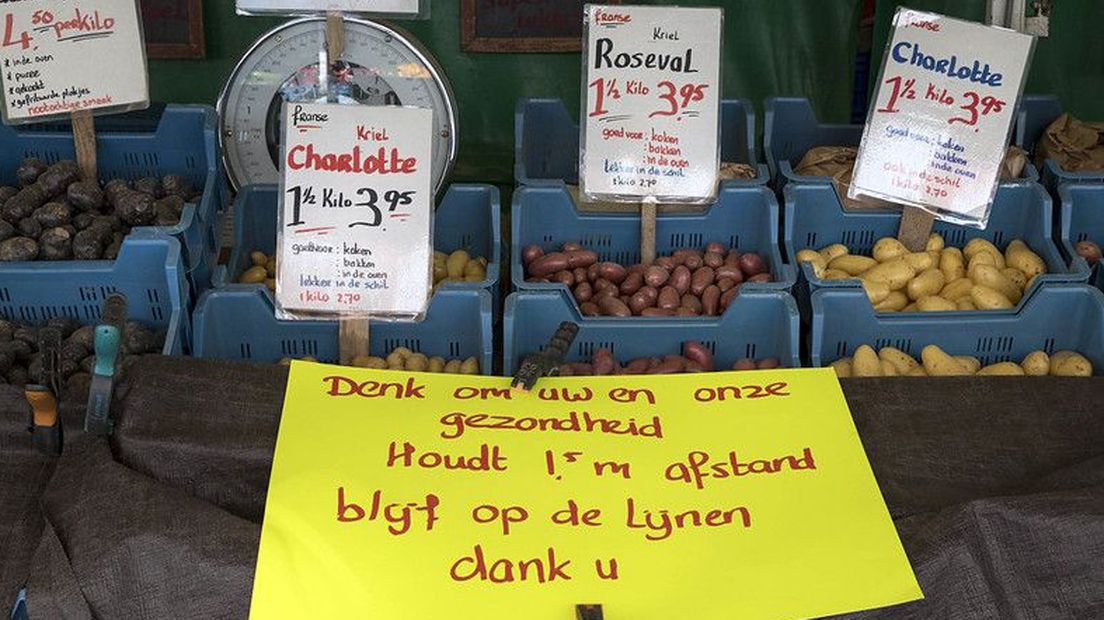 4.50 per kilo
* in de oven
* puree
* gekookt
* gefrituurde plakjes
nootachtige smaak
franse
franse
Kriel
Charlotte
1½ Kilo 3.95
goed voor: koken
: bakken
: in de oven
lekker in de schil
1 kilo 2.70
franse
Kriel
Roseval
1½ Kilo 3.95
goed voor: koken
: bakken
: in de oven
lekker in de schil
1 kilo 2.70
franse
Charlotte
1½ Kilo 3.95
goed voor: koken
: bakken
: in de oven
ook in de schil
1 kilo 2.70
Denk om uw en onze
gezondheid
Houdt 1.5 m afstand
blijf op de Lijnen
dank u